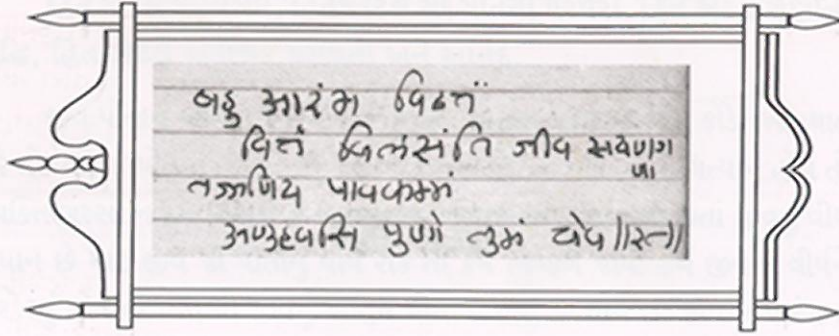 बहु आरंभ विढत्तं
वित्तं विलसंति जीव सयणगणा
तज्जणिय पावकम्मं
अणुहवसि पुणो तुमं चेव